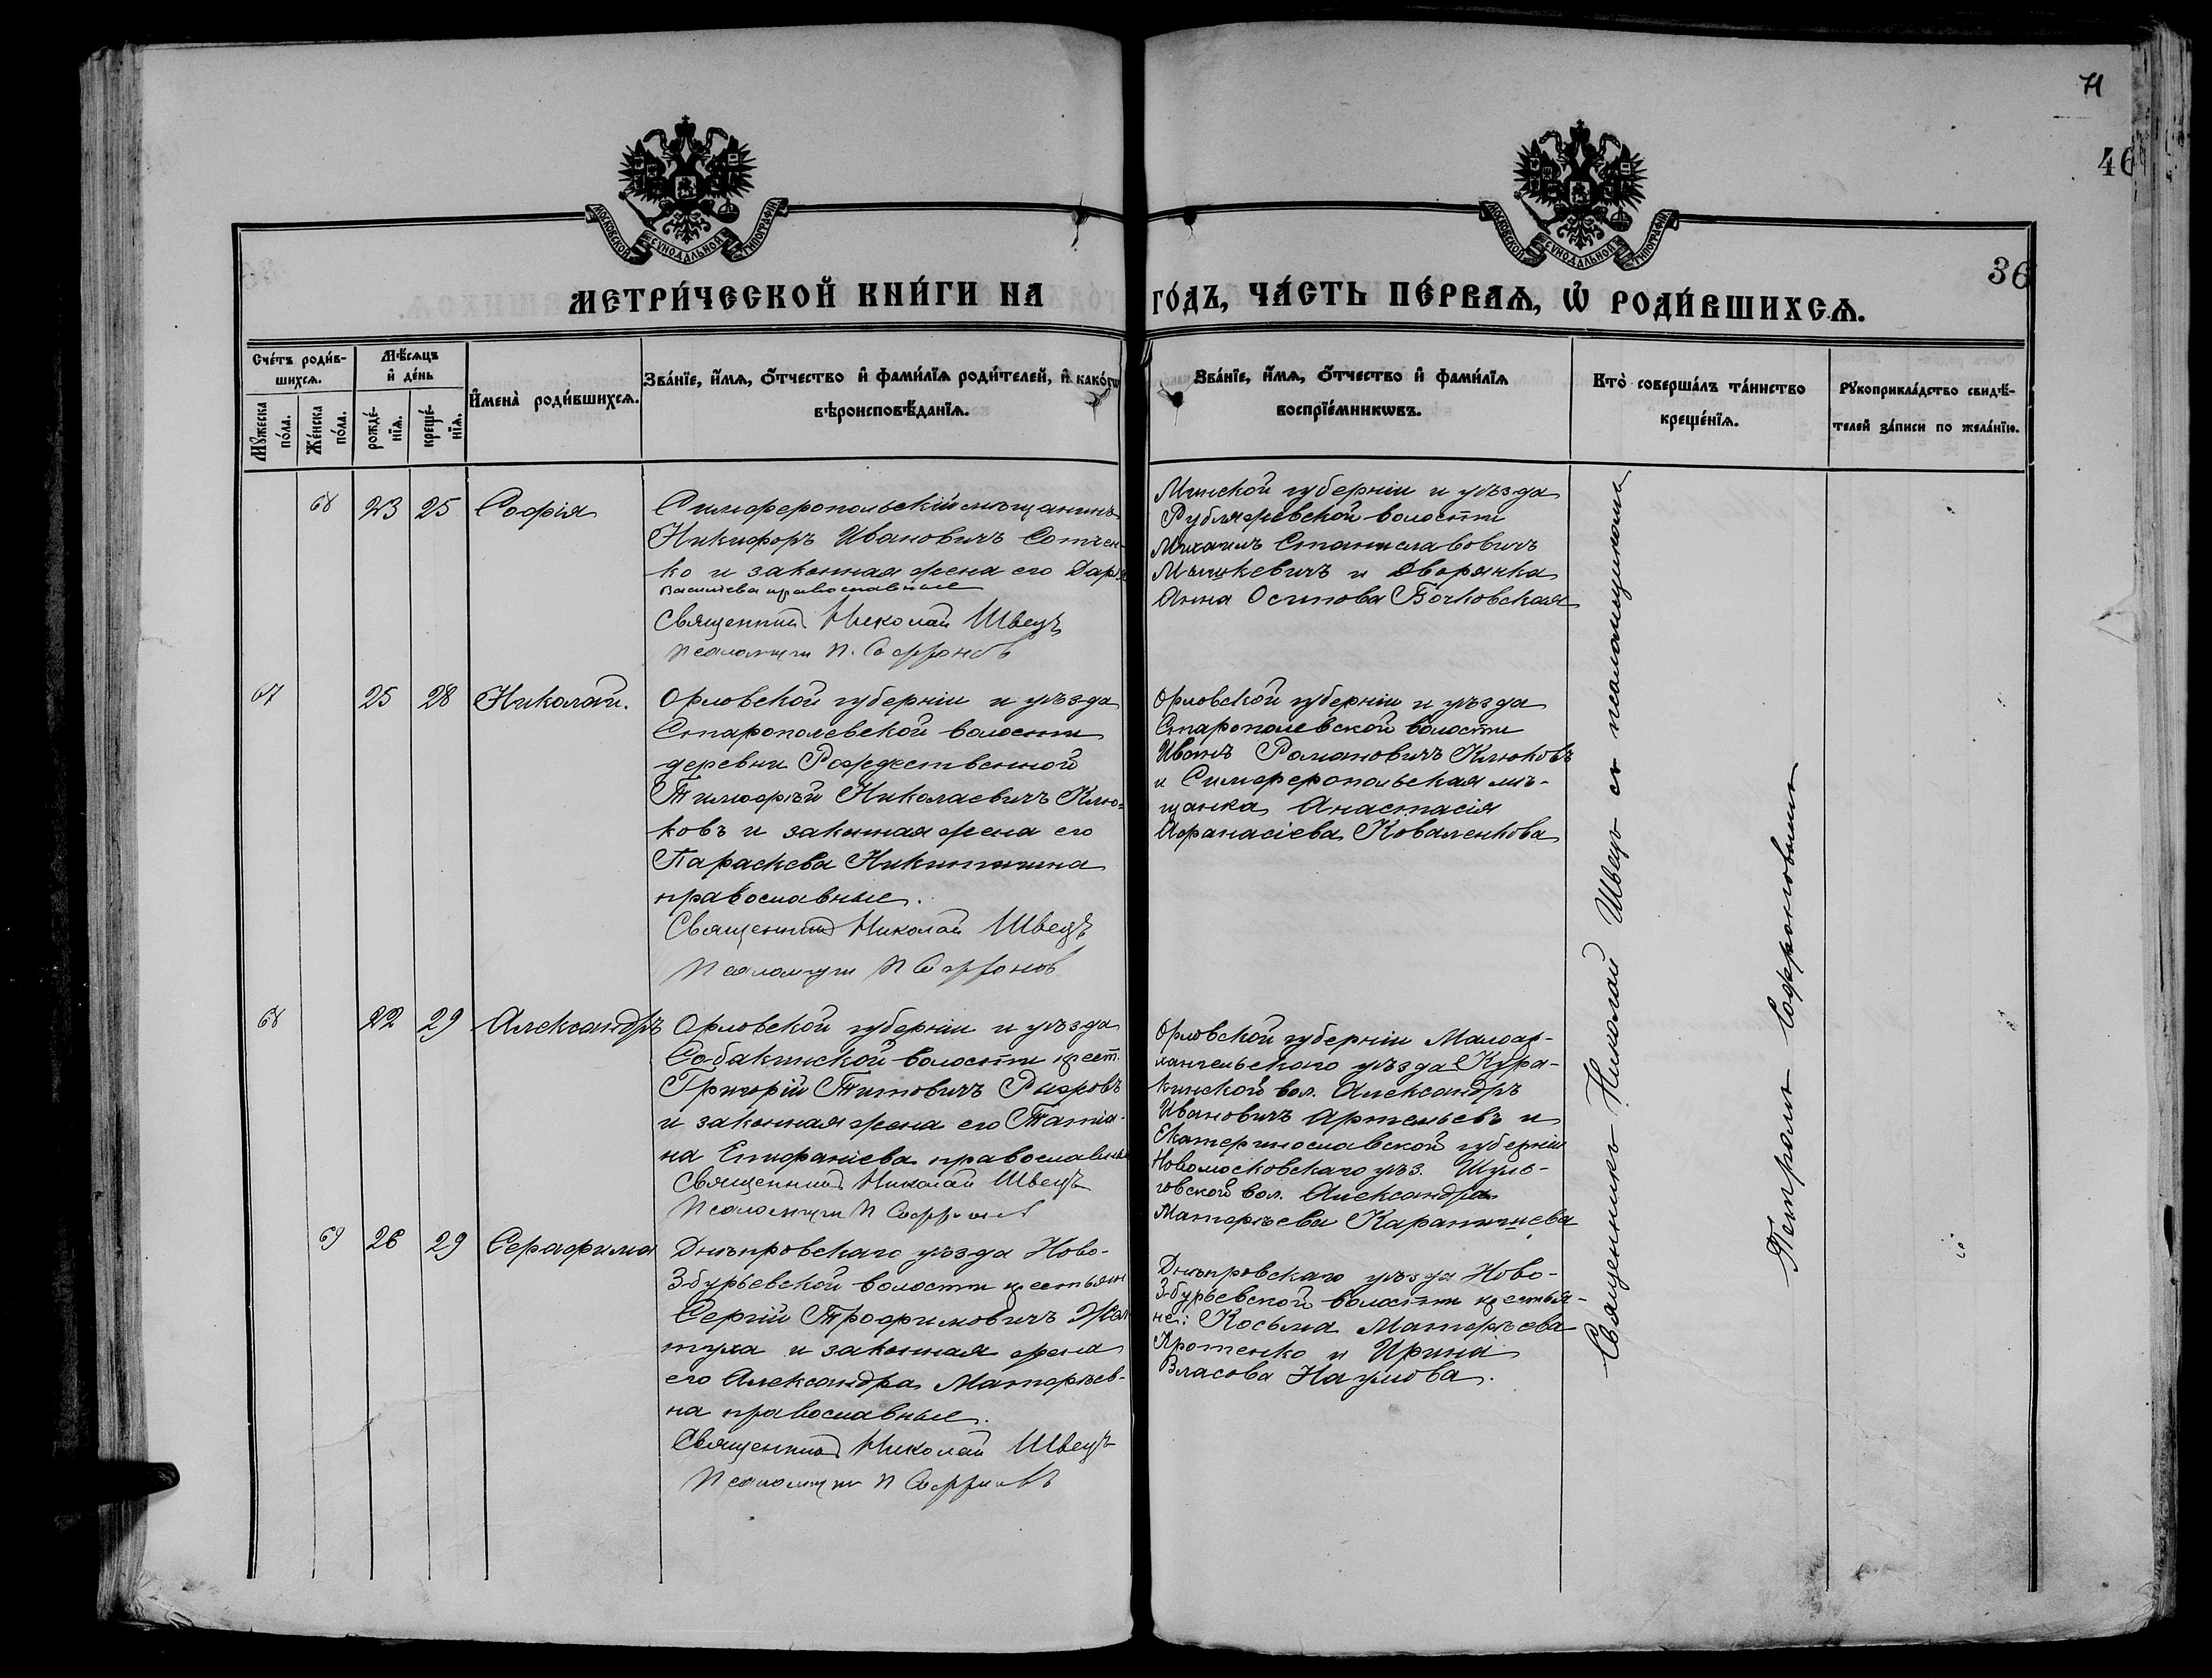 71
46
36
МОСКОВСКОЙ СѴНОДАЛЬНОЙ ТИПОГРАФІИ
МОСКОВСКОЙ СѴНОДАЛЬНОЙ ТИПОГРАФІИ
МЕТРИ́ЧЕСКОЙ КНИ́ГИ НА
ГО́ДЪ, ЧА́СТЬ ПЕ́РВАѦ, Ѽ РОДИ́ВШИХСѦ.
Сче́тъ роди́в-
шихсѧ.
Мꙋ́жеска
по́ла.
Же́нска
по́ла.
Мѣ́сѧцъ
и҆ де́нь
рожде́-
нїѧ.
креще́-
нїѧ.
И҆мена̀ роди́вшихсѧ.
Зва́нїе, и҆́мѧ, ѻ҆́тчество и҆ фами́лїѧ роди́телей, и҆ како́гѡ
вѣроисповѣ́данїѧ.
Зва́нїе, и҆́мѧ, ѻ҆́тчество и҆ фами́лїѧ
воспрїе́мникѡвъ.
Кто̀ соверша́лъ та́инство
креще́нїѧ.
Рꙋкоприкла́дство свидѣ́-
телей за́писи по жела́нїю.
68 23 25 Софія
Симферопольскій мѣщанинъ
Никифоръ Ивановичъ Сотчен-
ко и законная жена его Дарья
Васильева православные
Священник Николай Швецъ
Псаломщик П. Софронов
Минской губерніи и уѣзда
волости
Михаилъ Станиславовичъ
Мышкевичъ и Дворянка
Анна Осипова Бочковская
67 25 28 Николай.
Орловской губерніи и уѣзда
Старополевской волости
деревни Рождественной
Тимофѣй Николаевичъ Клю-
ковъ и законная жена его
Параскева Никитична
православные.
Священник Николай Швецъ
Псаломщик П Софронов
Орловской губерніи и уѣзда
Старополевской волости
Иванъ Романовичъ Клюковъ
и Симферопольская мѣ-
щанка Анастасія
Афанасіева Коваленкова
68 22 29 Александръ
Орловской губерніи и уѣзда
Собакинской волости крест.
Григорій Титовичъ Рыжовъ
и законная жена его Татіа-
на Епифаніева православные
Священник Николай Швецъ
Псаломщик П Софронов
Орловской губерніи Малоар-
хангельскаго уѣзда Кура-
кинской вол. Александръ
Ивановичъ Артельевъ и
Екатеринославской губерніи
Новомосковскаго уѣз. Шуль-
говской вол. Александра
Матфѣева
69 26 29 Серафима
Днѣпровскаго уѣзда Ново-
Збурьевской волости крестьян
Сергій Трофимовичъ Жел
туха и законная жена
его Александра Матфѣев-
на православные.
Священник Николай Швецъ
Псаломщик П Софронов
Днѣпровскаго уѣзда Ново-
Збурьевской волости крестья-
не: Косьма Матфѣева
Яротенко и Ирина
Власова Наумова.
Священникъ Николай Швецъ съ псаломщикомъ
Петромъ Софроновымъ